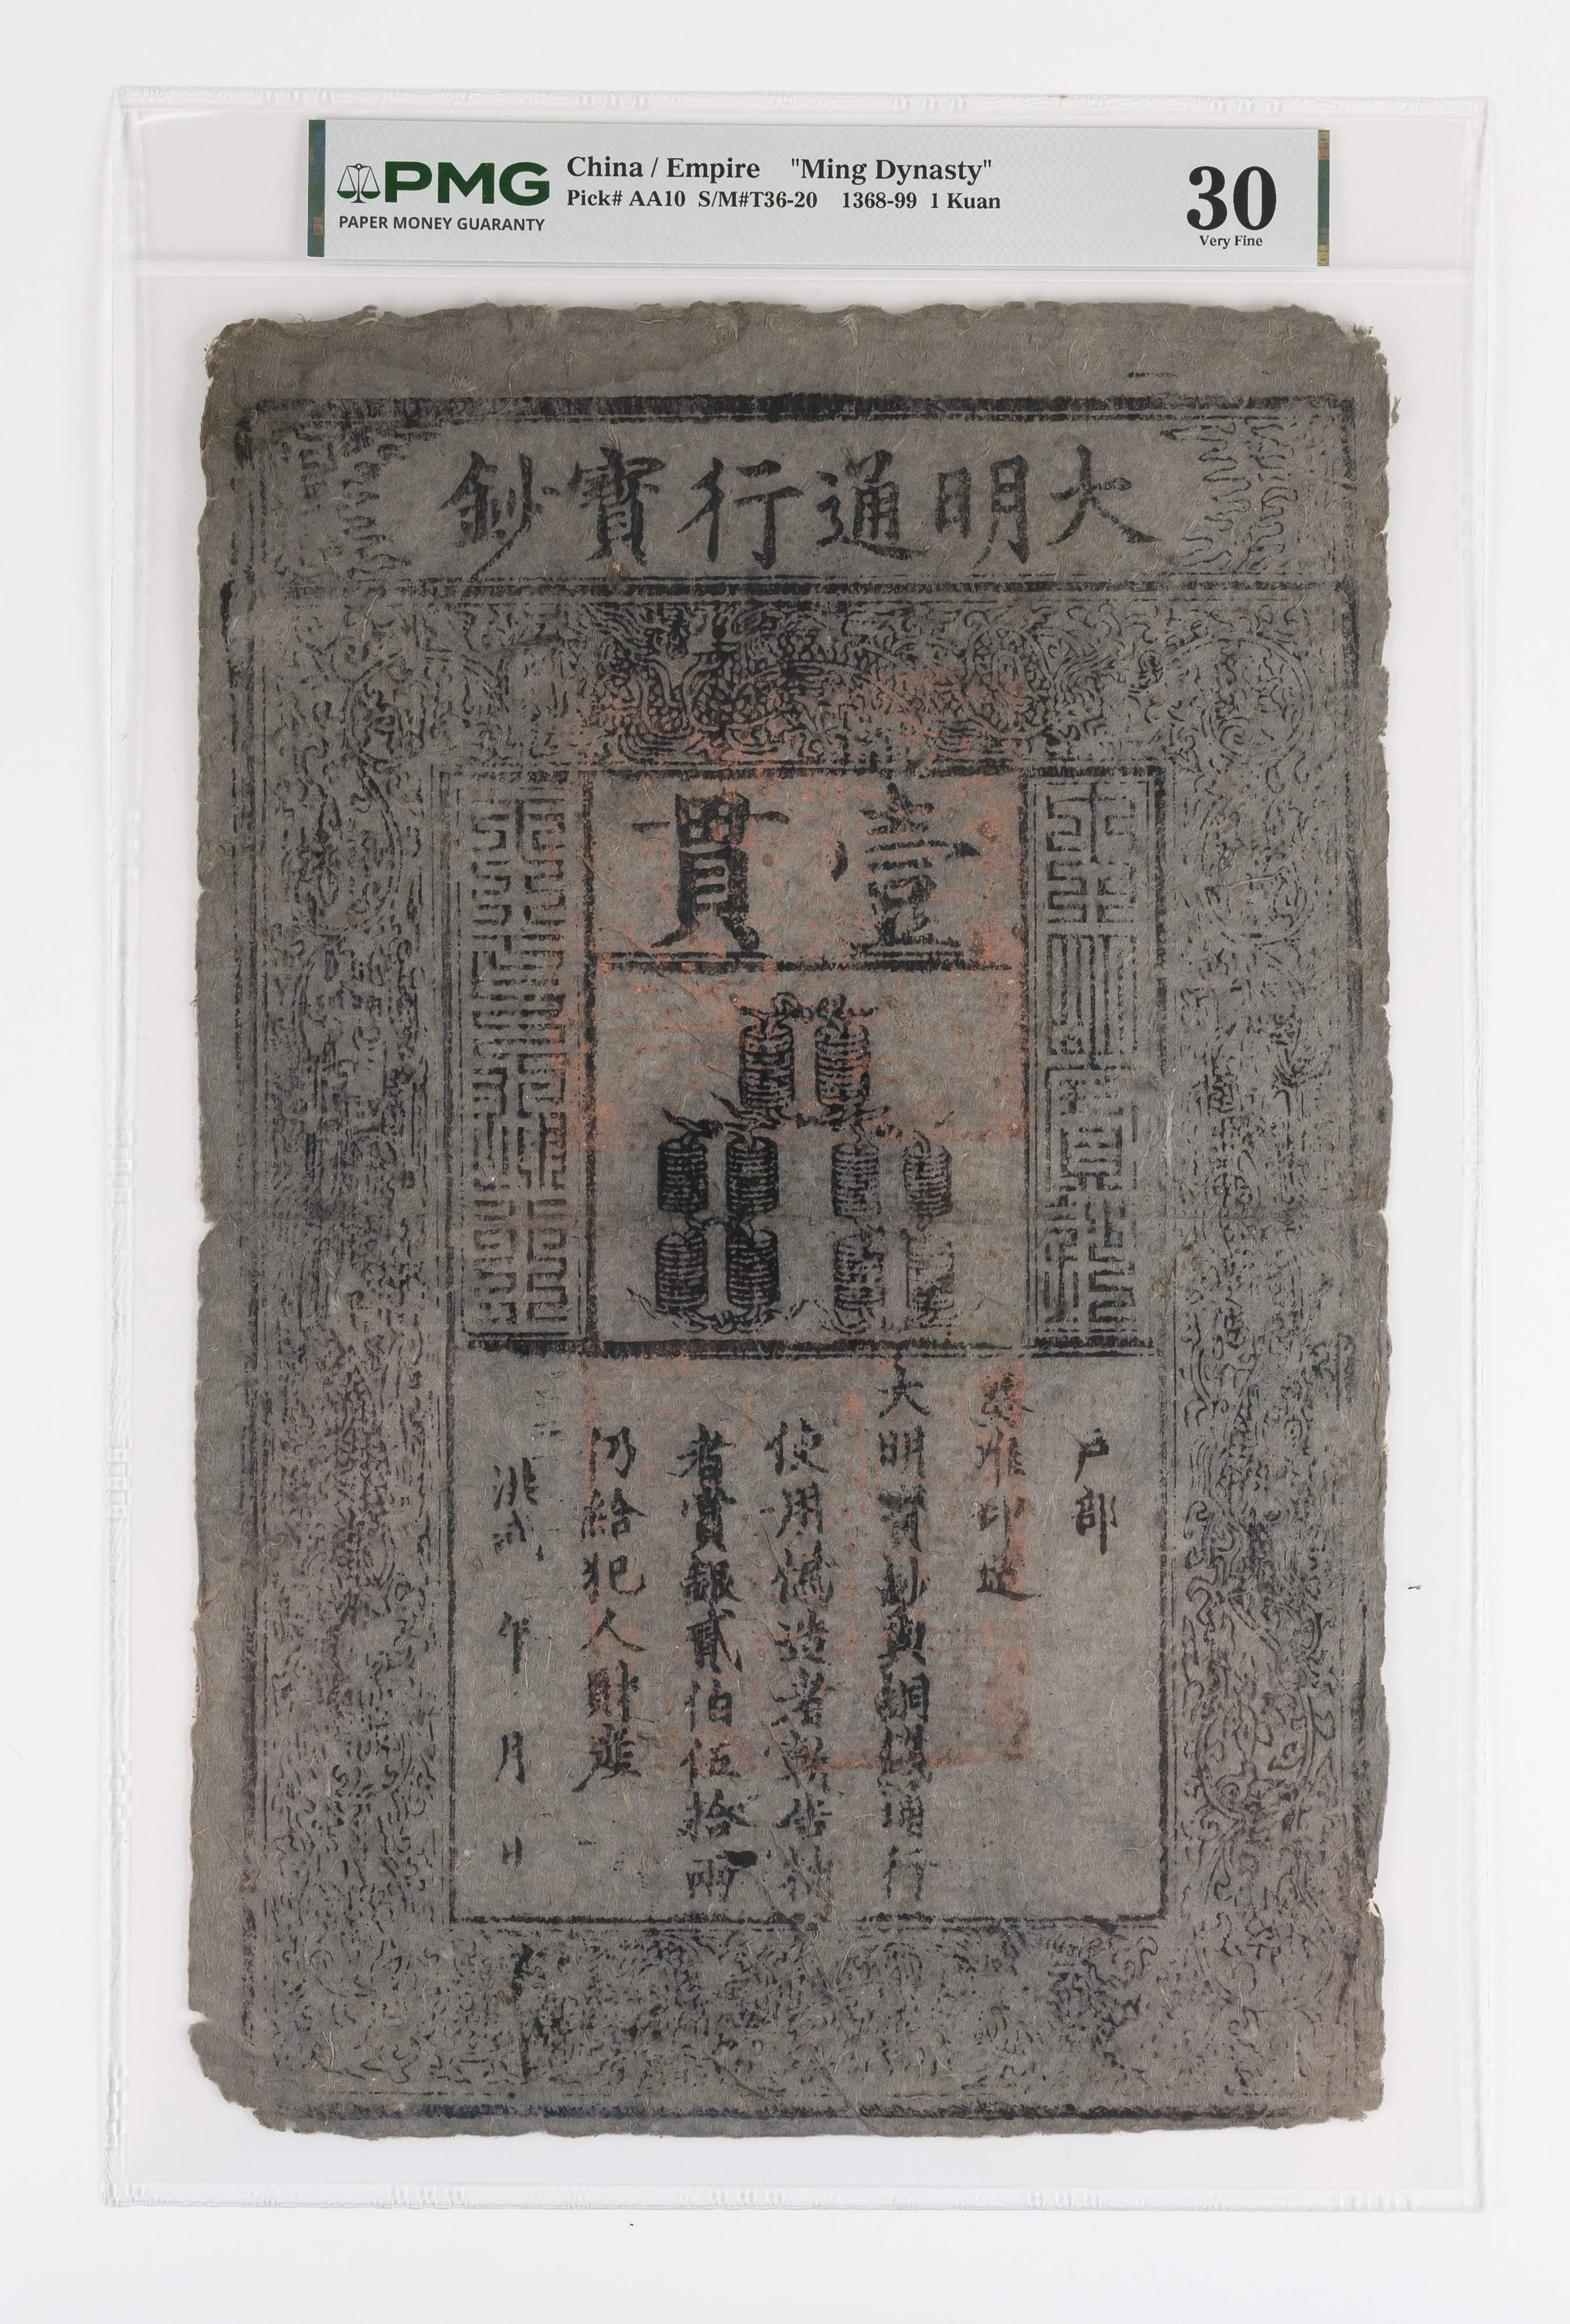 PMG
PAPER MONEY GUARANTY
China / Empire "Ming Dynasty"
Pick# AA10 S/M#T36-20 1368-99 1 Kuan
30
Very Fine
大明通行寶鈔
壹貫
戶部
准印造
大明寶鈔與銅錢通行
使用偽造者斬告捕
者賞銀貳伯伍拾兩
仍給犯人財產
洪武 年 月 日